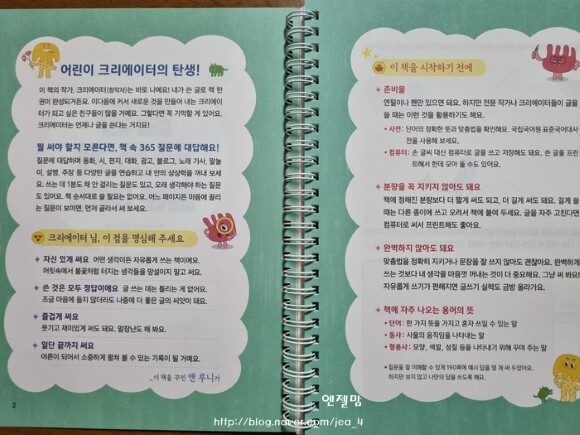 어린이 크리에이터의 탄생!
이 책의 작가, 크리에이터(창작자)는 바로 나예요! 내가 쓴 글로 책 한
권이 완성되거든요. 이다음에 커서 새로운 것을 만들어 내는 크리에이
터가 되고 싶은 친구들이 많을 거예요. 그렇다면 꼭 기억할 게 있어요.
크리에이터는 언제나 글을 쓴다는 거지요!
뭘 써야 할지 모른다면, 책 속 365 질문에 대답해요!
질문에 대답하며 동화, 시, 편지, 대화, 광고, 블로그, 노래 가사, 말놀
이, 설명, 주장 등 다양한 글을 연습하고 내 안의 상상력을 꺼내 보세
요. 쓰는 데 1분도 채 안 걸리는 질문도 있고, 오래 생각해야 하는 질문
도 있어요. 책 순서대로 쓸 필요는 없어요. 어느 페이지든 마음에 끌리
는 질문이 보이면, 먼저 골라서 써 보세요.
크리에이터 님, 이 점을 명심해 주세요
자신 있게 써요 어떤 생각이든 자유롭게 쓰는 책이에요.
머릿속에서 불꽃처럼 터지는 생각들을 망설이지 말고 써요.
쓴 것은 모두 정답이에요 글 쓰는 데는 틀리는 게 없어요.
조금 마음에 들지 않더라도 나중에 더 좋은 글의 씨앗이 돼요.
즐겁게 써요
웃기고 재미있게 써도 돼요. 말장난도 해 봐요.
일단 끝까지 써요
어른이 되어서 소중하게 펼쳐 볼 수 있는 기록이 될 거예요.
_이 책을 꾸민 앤 루니가
2
이 책을 시작하기 전에
준비물
연필이나 펜만 있으면 돼요. 하지만 전문 작가나 크리에이터들이 글을
쓸 때는 이런 것을 활용하기도 해요.
• 사전 : 단어의 정확한 뜻과 맞춤법을 확인해요. 국립국어원 표준국어대사
전을 사용해 보세요.
• 컴퓨터 : 손 글씨 대신 컴퓨터로 글을 쓰고 저장해도 돼요. 쓴 글을 프린
트해서 한데 모아 둘 수도 있어요.
분량을 꼭 지키지 않아도 돼요
책에 정해진 분량보다 더 짧게 써도 되고, 더 길게 써도 돼요. 길게 쓸
때는 다른 종이에 쓰고 오려서 책에 붙여 두세요. 글을 자주 고친다면
컴퓨터로 써서 프린트해도 좋아요.
완벽하지 않아도 돼요
맞춤법을 정확히 지키거나 문장을 잘 쓰지 않아도 괜찮아요. 완벽하게
쓰는 것보다 내 생각을 마음껏 꺼내는 것이 더 중요해요. 그냥 써 봐요!
자유롭게 쓰기가 편해지면 글쓰기 실력도 금방 올라가요.
책에 자주 나오는 용어의 뜻
• 단어 : 한 가지 뜻을 가지고 혼자 쓰일 수 있는 말
• 동사 : 사물의 움직임을 나타내는 말
• 형용사 : 모양, 색깔, 성질 등을 나타내기 위해 꾸며 주는 말
• 질문을 잘 이해할 수 있게 190쪽에 예시 답을 몇 개 써 두었어요.
하지만 보지 않고 나만의 답을 쓰도록 해요.
앤젤맘
http://blog.naver.com/jea_4